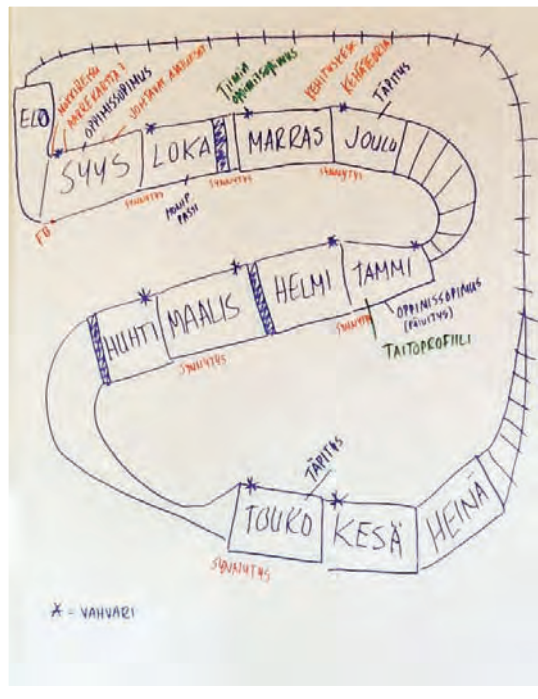 ELO
OPPIMISSOPIMUS
JOHTAVAT AJATUKSET
Tiimin
oppimissopimus
KEHITYSKESK
KEHÄTEORIA
TÄPITYS
SYYS
LOKA
MARRAS
JOULU
FB
SYNNYTYS
SYNNYTYS
SYNNYTYS
PASSI
HUHTI
MAALIS
HELMI
TAMMI
SYNNYTYS
SYNNYTYS
OPPIMISSOPIMUS
(PÄIVITYS)
TAITOPROFIILI
TÄPITYS
TOUKO
KESÄ
HEINÄ
SYNNYTYS
* = VAHVARI